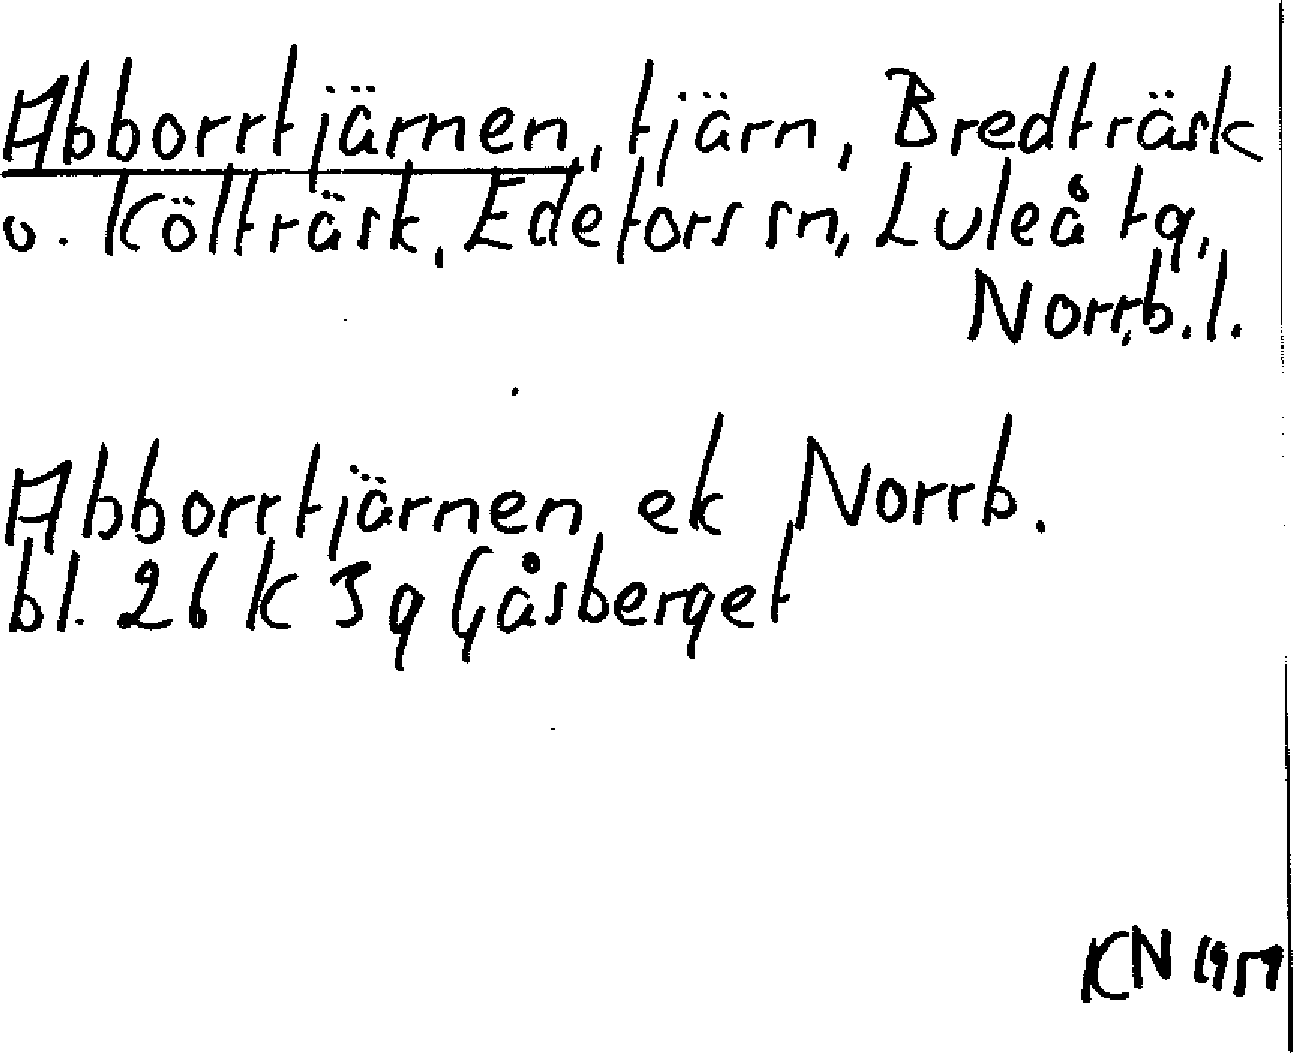 Abborrtjärnen, tjärn, Bredträsk
o. Költräsk, Edefors sn, Luleå tg,
Norrb. l.
Abborrtjärnen ek Norrb.
bl. 26 K 3 g Gåsberget
KN 1959